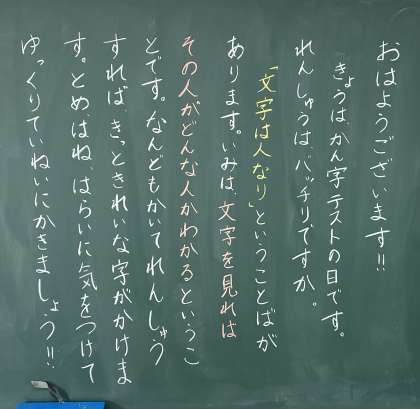 おはようございます!!
きょうはかん字テストの日です。
れんしゅうは、バッチリですか。
「文字は人なり」ということばが
あります。いみは、文字を見れば
その人がどんな人かわかるというこ
とです。なんどもかいてれんしゅう
すれば、きっときれいな字がかけま
す。とめ、はね、はらいに気をつけて
ゆっくりていねいにかきましょう!!